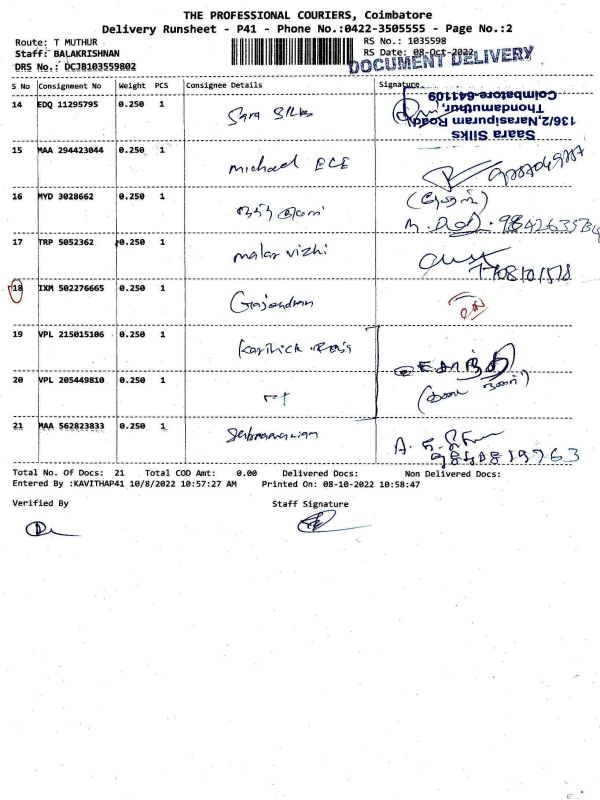 THE PROFESSIONAL COURIERS, Coimbatore
Delivery Runsheet - P41 - Phone No.:0422-3505555 - Page No.:2
Route: T MUTHUR
RS No.: 1035598
Staff: BALAKRISHNAN
RS Date: 08-Oct-2022
DRS No.: DCJB103559802
DOCUMENT DELIVERY
S No Consignment No Weight PCS Consignee Details Signature
14 EDQ 11295795 0.250 1 Sara Silks
Saara Silks
136/2,Narasipuram Road,
Thondamuthur,
Coimbatore-641109
15 MAA 294423044 0.250 1 michael ECE
16 MYD 3028662 0.250 1
17 TRP 5052362 0.250 1 malar vizhi
18 IXM 502276665 0.250 1 Gajendran
19 VPL 215015106 0.250 1 Karthick
20 VPL 205449810 0.250 1
21 MAA 562823833 0.250 1 Subramanian
Total No. Of Docs: 21 Total COD Amt: 0.00 Delivered Docs: Non Delivered Docs:
Entered By :KAVITHAP41 10/8/2022 10:57:27 AM Printed On: 08-10-2022 10:58:47
Verified By Staff Signature